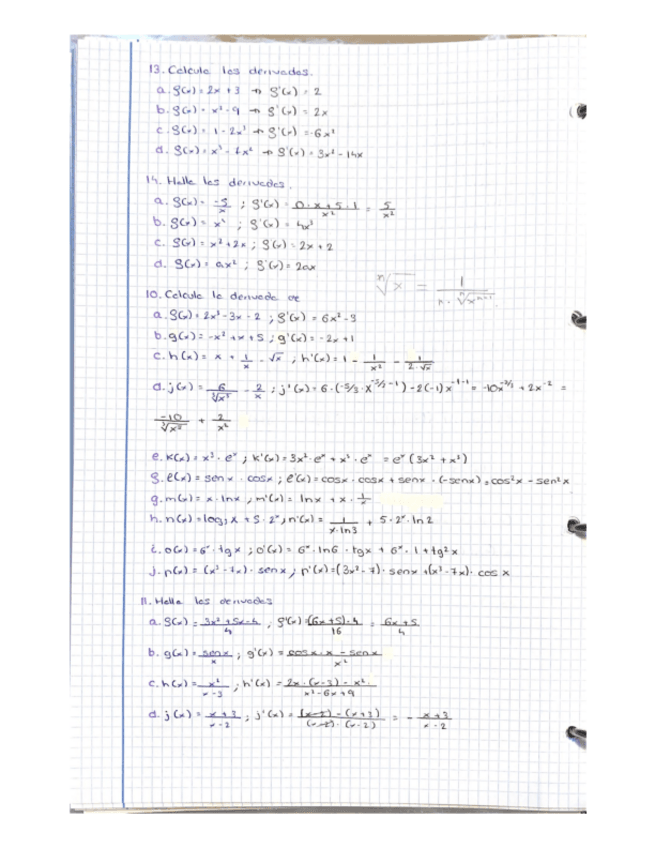 13. Calcula las derivadas.
a. f(x) = 2x + 3 → f'(x) = 2
b. f(x) = x² - 9 → f'(x) = 2x
c. f(x) = 1 - 2x³ → f'(x) = -6x²
d. f(x) = x³ - 7x² → f'(x) = 3x² - 14x
14. Halla las derivadas.
a. f(x) = -5/x ; f'(x) = 0·x + 5·1 / x² = 5/x²
b. f(x) = x⁴ ; f'(x) = 4x³
c. f(x) = x² + 2x ; f(x) = 2x + 2
d. f(x) = ax² ; f'(x) = 2ax
ⁿ√x = 1 / n·ⁿ√xⁿ⁻¹
10. Calcula la derivada de
a. f(x) = 2x³ - 3x - 2 ; f'(x) = 6x² - 3
b. g(x) = -x² + x + 5 ; g'(x) = -2x + 1
c. h(x) = x + 1/x - √x ; h'(x) = 1 - 1/x² - 1/2·√x
d. j(x) = 6/∛x⁵ - 2/x ; j'(x) = 6·(-5/3·x^(-5/3-1)) - 2(-1)x^(-1-1) = -10x + 2x⁻² =
-10 + 2/x²
e. k(x) = x³·eˣ ; k'(x) = 3x²·eˣ + x³·eˣ = eˣ(3x² + x³)
f. l(x) = senx·cosx ; l'(x) = cosx·cosx + senx·(-senx) = cos²x - sen²x
g. m(x) = x·lnx ; m'(x) = lnx + x·1/x
h. n(x) = log₃x + 5·2ˣ ; n'(x) = 1/x·ln3 + 5·2ˣ·ln2
i. o(x) = 6ˣ·tgx ; o'(x) = 6ˣ·ln6·tgx + 6ˣ·1+tg²x
j. p(x) = (x³ - 7x)·senx ; p'(x) = (3x² - 7)·senx + (x³ - 7x)·cosx
11. Halla las derivadas
a. f(x) = 3x² + 5x - 4 / 4 ; f'(x) = (6x + 5)·4 / 16 = 6x + 5 / 4
b. g(x) = senx / x ; g'(x) = cosx·x - senx / x²
c. h(x) = x² / x - 3 ; h'(x) = 2x·(x - 3) - x² / x² - 6x + 9
d. j(x) = x + 3 / x - 2 ; j'(x) = (x - 2) - (x + 3) / (x - 2)·(x - 2) = - x + 3 / x - 2